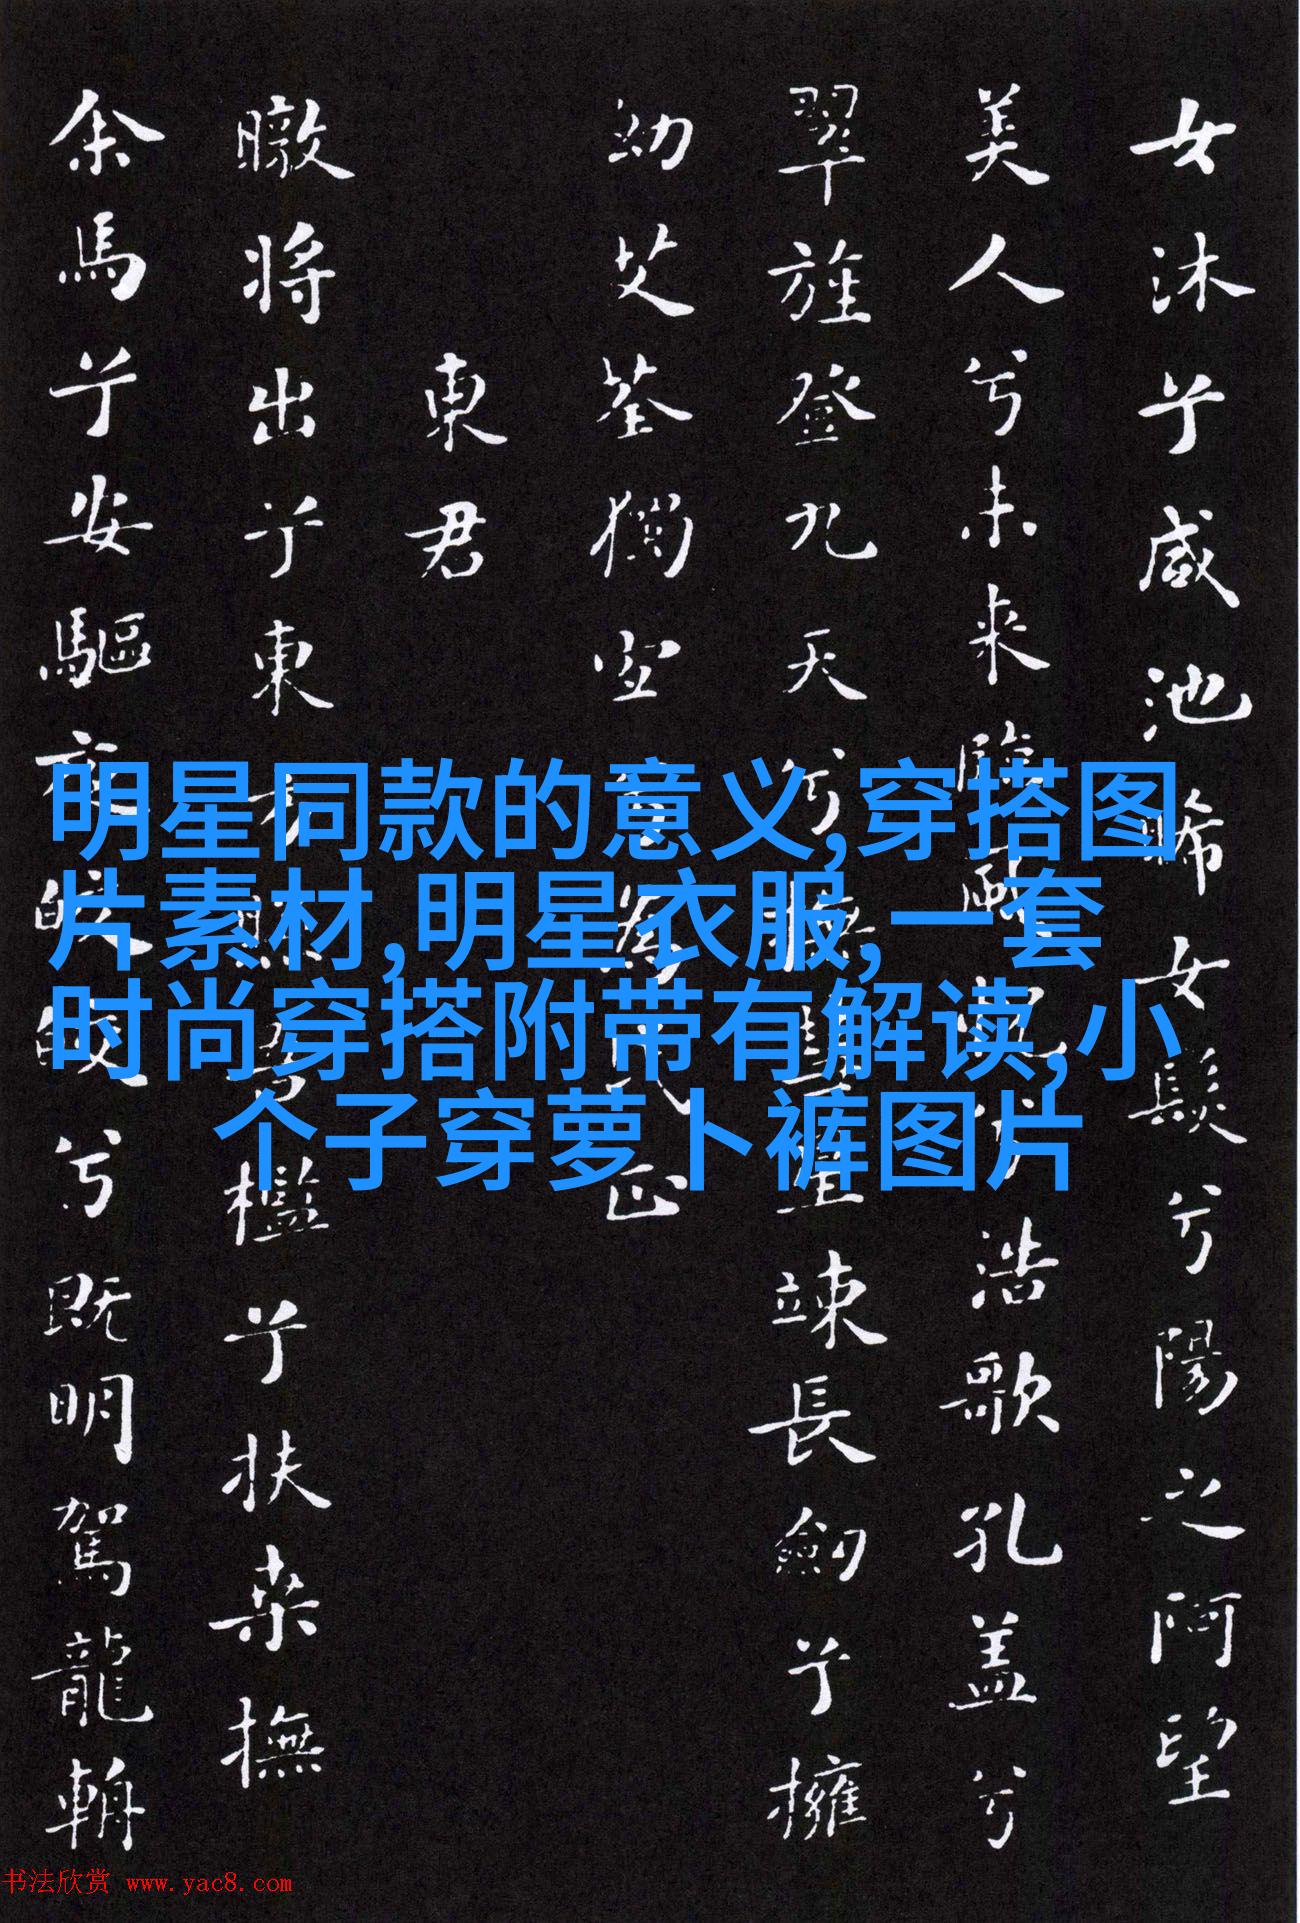 女沐兮咸池晞女髮兮陽之阿望
美人兮未来臨兮浩歌孔盖兮
翠旌登九天兮撫彗星竦長劍兮擁
幼艾荃獨宜兮為民正
東君
暾将出兮東方照吾檻兮扶桒撫
余馬兮安驅夜皎皎兮既明駕龍輈
明星同款的意义,穿搭图
片素材,明星衣服,一套
时尚穿搭附带有解读,小
个子穿萝卜裤图片
书法欣赏 www.yac8.com